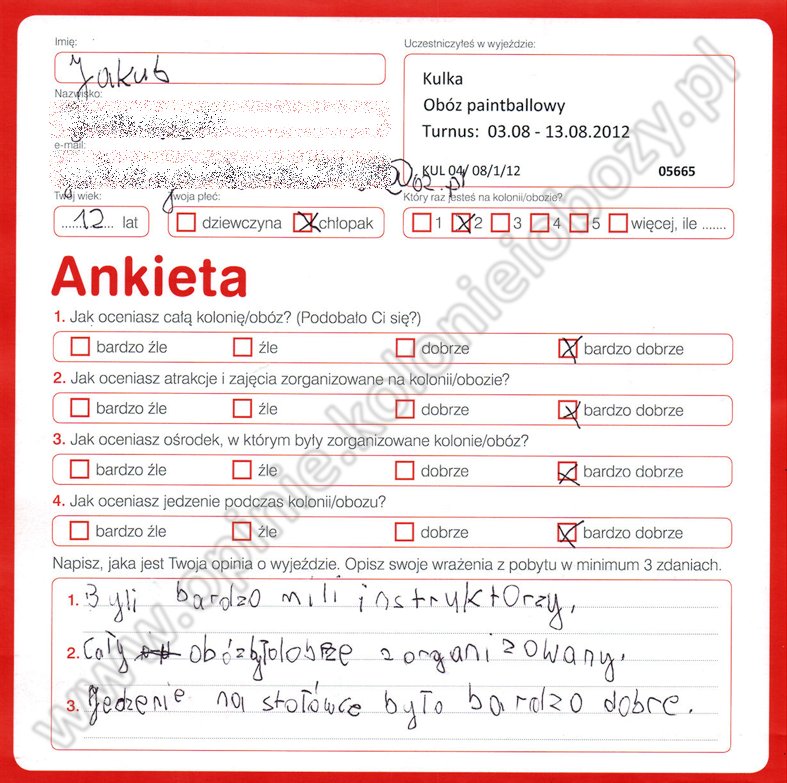 Imię:
Jakub
Uczestniczyłeś w wyjeździe:
Kulka
Obóz paintballowy
Turnus: 03.08 - 13.08.2012
KUL 04/ 08/1/12 05665
Nazwisko:
e-mail:
@o2.pl
Twój wiek:
12 lat
Twoja płeć:
dziewczyna chłopak
Który raz jesteś na kolonii/obozie?
1 2 3 4 5 więcej, ile .......
Ankieta
1. Jak oceniasz całą kolonię/obóz? (Podobało Ci się?)
bardzo źle źle dobrze bardzo dobrze
2. Jak oceniasz atrakcje i zajęcia zorganizowane na kolonii/obozie?
bardzo źle źle dobrze bardzo dobrze
3. Jak oceniasz ośrodek, w którym były zorganizowane kolonie/obóz?
bardzo źle źle dobrze bardzo dobrze
4. Jak oceniasz jedzenie podczas kolonii/obozu?
bardzo źle źle dobrze bardzo dobrze
Napisz, jaka jest Twoja opinia o wyjeździe. Opisz swoje wrażenia z pobytu w minimum 3 zdaniach.
1. Byli bardzo mili instruktorzy.
2. Cały obóz był dobrze zorganizowany.
3. Jedzenie na stołówce było bardzo dobre.
www.opinie.kolonieiobozy.pl